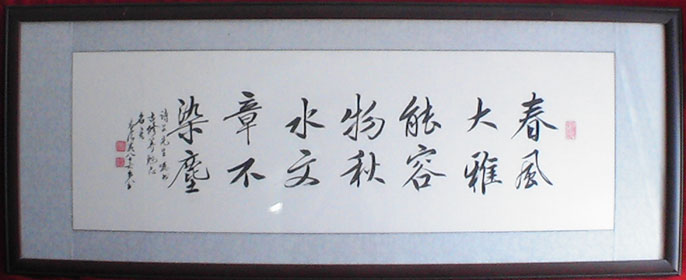 春风
大雅
能容
物秋
水文
章不
染塵